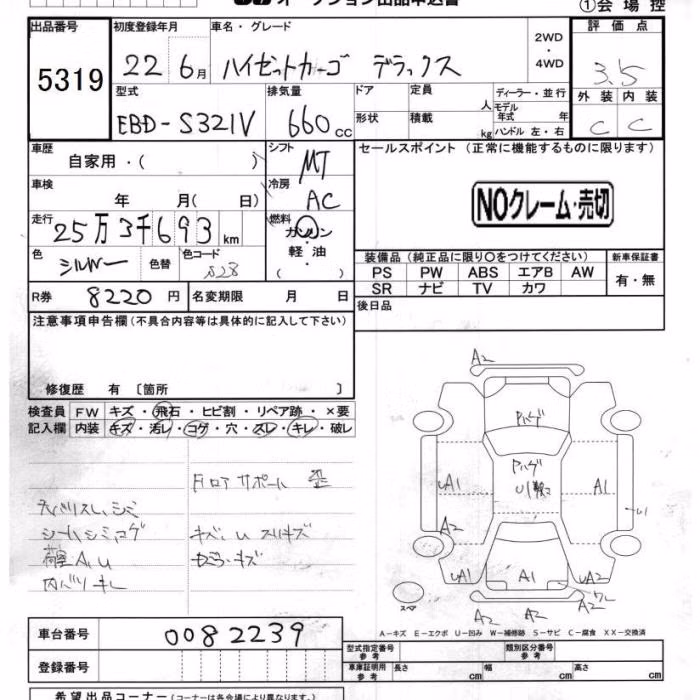 オークション出品申込書
①会場控
出品番号 初度登録年月 車名・グレード 2WD・4WD 評価点
5319 22 6月 ハイゼットカーゴ デラックス 3.5
型式 排気量 ドア 定員 人 ディーラー・並行 外装 内装
EBD-S321V 660cc 形状 積載 kg モデル年式 年 ハンドル 左・右 C C
車歴 自家用・( ) シフト MT セールスポイント (正常に機能するものに限ります)
車検 年 月( 日) 冷房 AC
NOクレーム・売切
走行 25万3千693km 燃料 ガソリン・軽油 ( )
色 シルバー 色替 色コード S28
装備品(純正品に限り○をつけてください) 新車保証書
PS PW ABS エアB AW 有・無
SR ナビ TV カワ
R券 8220円 名変期限 月 日 後日品
注意事項申告欄(不具合内容等は具体的に記入して下さい)
修復歴 有 〔箇所 〕
検査員 FW キズ・飛石・ヒビ割・リペア跡・×要
記入欄 内装 キズ・汚レ・コゲ・穴・スレ・キレ・破レ
フロアサポート 歪
シート シミ、コゲ キズ、U スリキズ
荷室 A、U
内バリ キレ
A2
Pハゲ
Pハゲ
UA1 U1 A1
A2
UA1 A1 UA2
スペア
A2 A2 A2
A-キズ E-エクボ U-凹み W-補修跡 S-サビ C-腐食 XX-交換済
車台番号 0082239
型式指定番号 参考 類別区分番号 参考
登録番号
車庫証明用 参考 長さ cm 幅 cm 高さ cm
希望出品コーナー(コーナーは各会場により異なります)